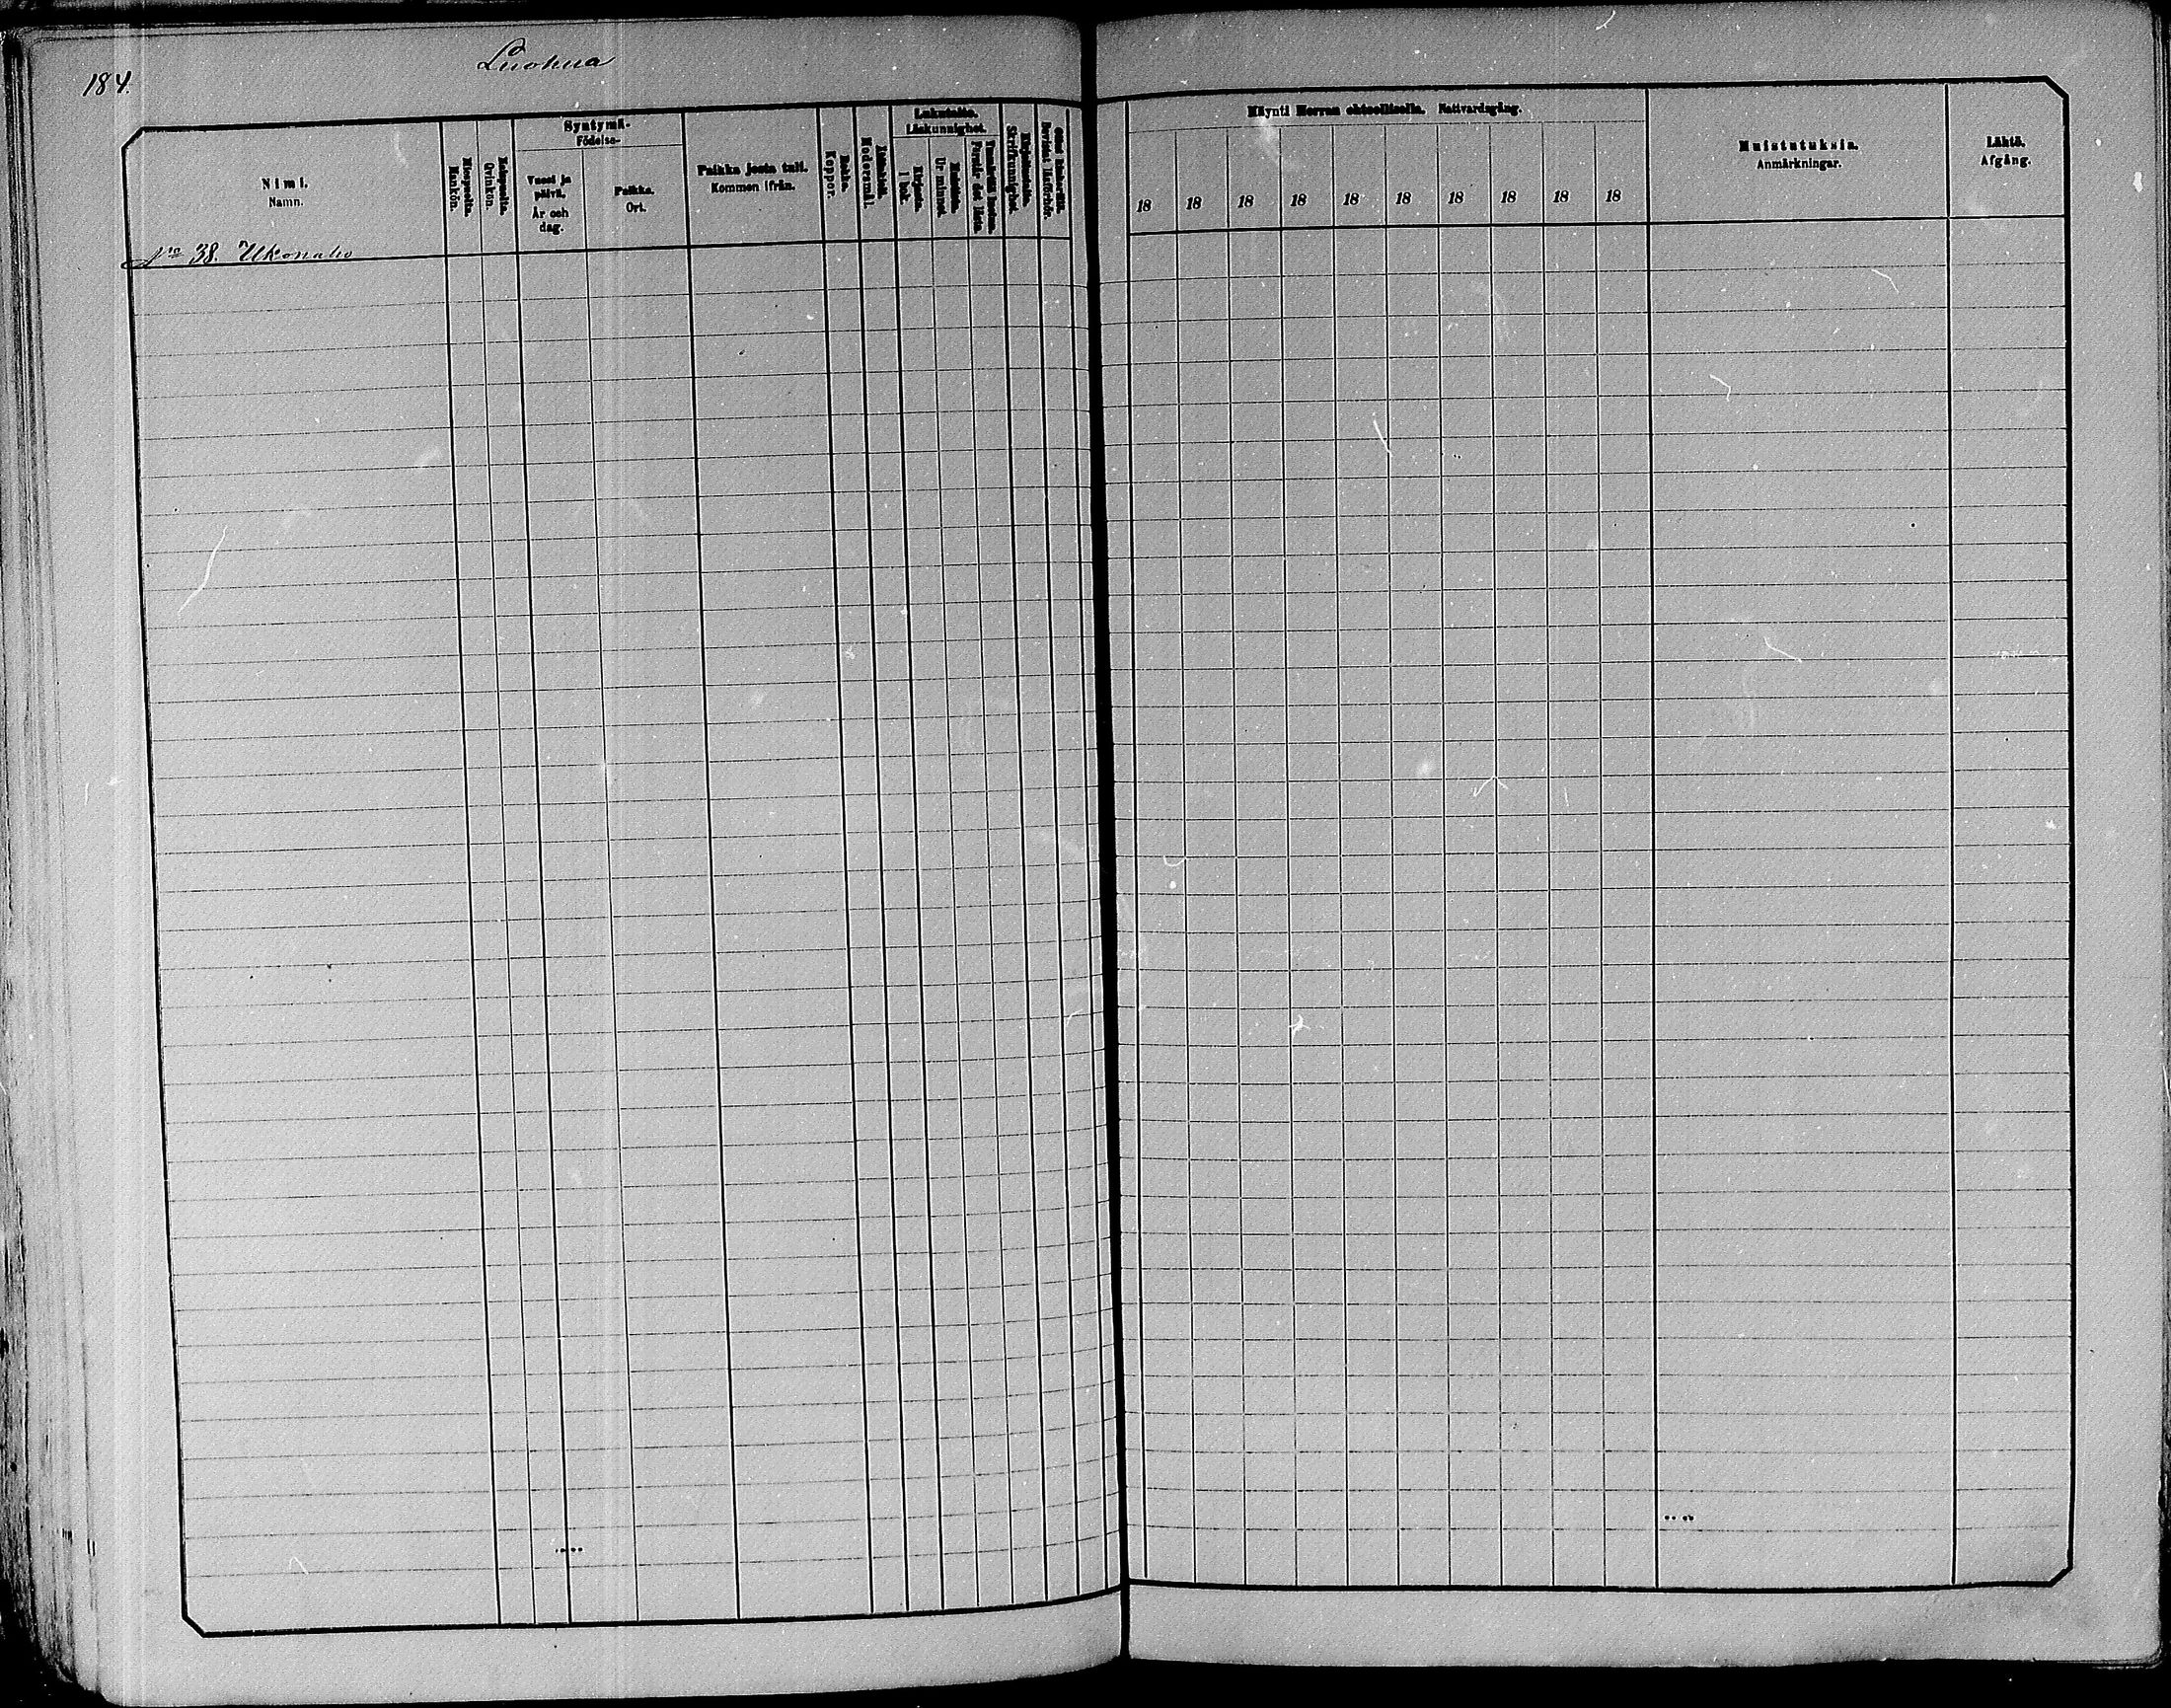 184.
Luohua
Nimi.
Namn.
Miespuolta.
Mankön.
Vaimopuolta.
Qvinkön.
Syntymä-
Födelse-
Vuosi ja
päivä.
År och
dag.
Paikka.
Ort.
Paikka josta tuli.
Kommen ifrån.
Rokko.
Koppor.
Modersmål.
Lukutaito.
Läskunnighet.
Kirjasta.
I bok.
Ur minnet.
Förstår det lästa.
Kirjoitustaito.
Skrifkunnighet.
Bevistat läsförhör.
Käynti Herran ehtoollisella. Nattvardsgång.
18 18 18 18 18 18 18 18 18 18
Muistutuksia.
Anmärkningar.
Lähtö.
Afgång.
Nro 38. Ukonaho